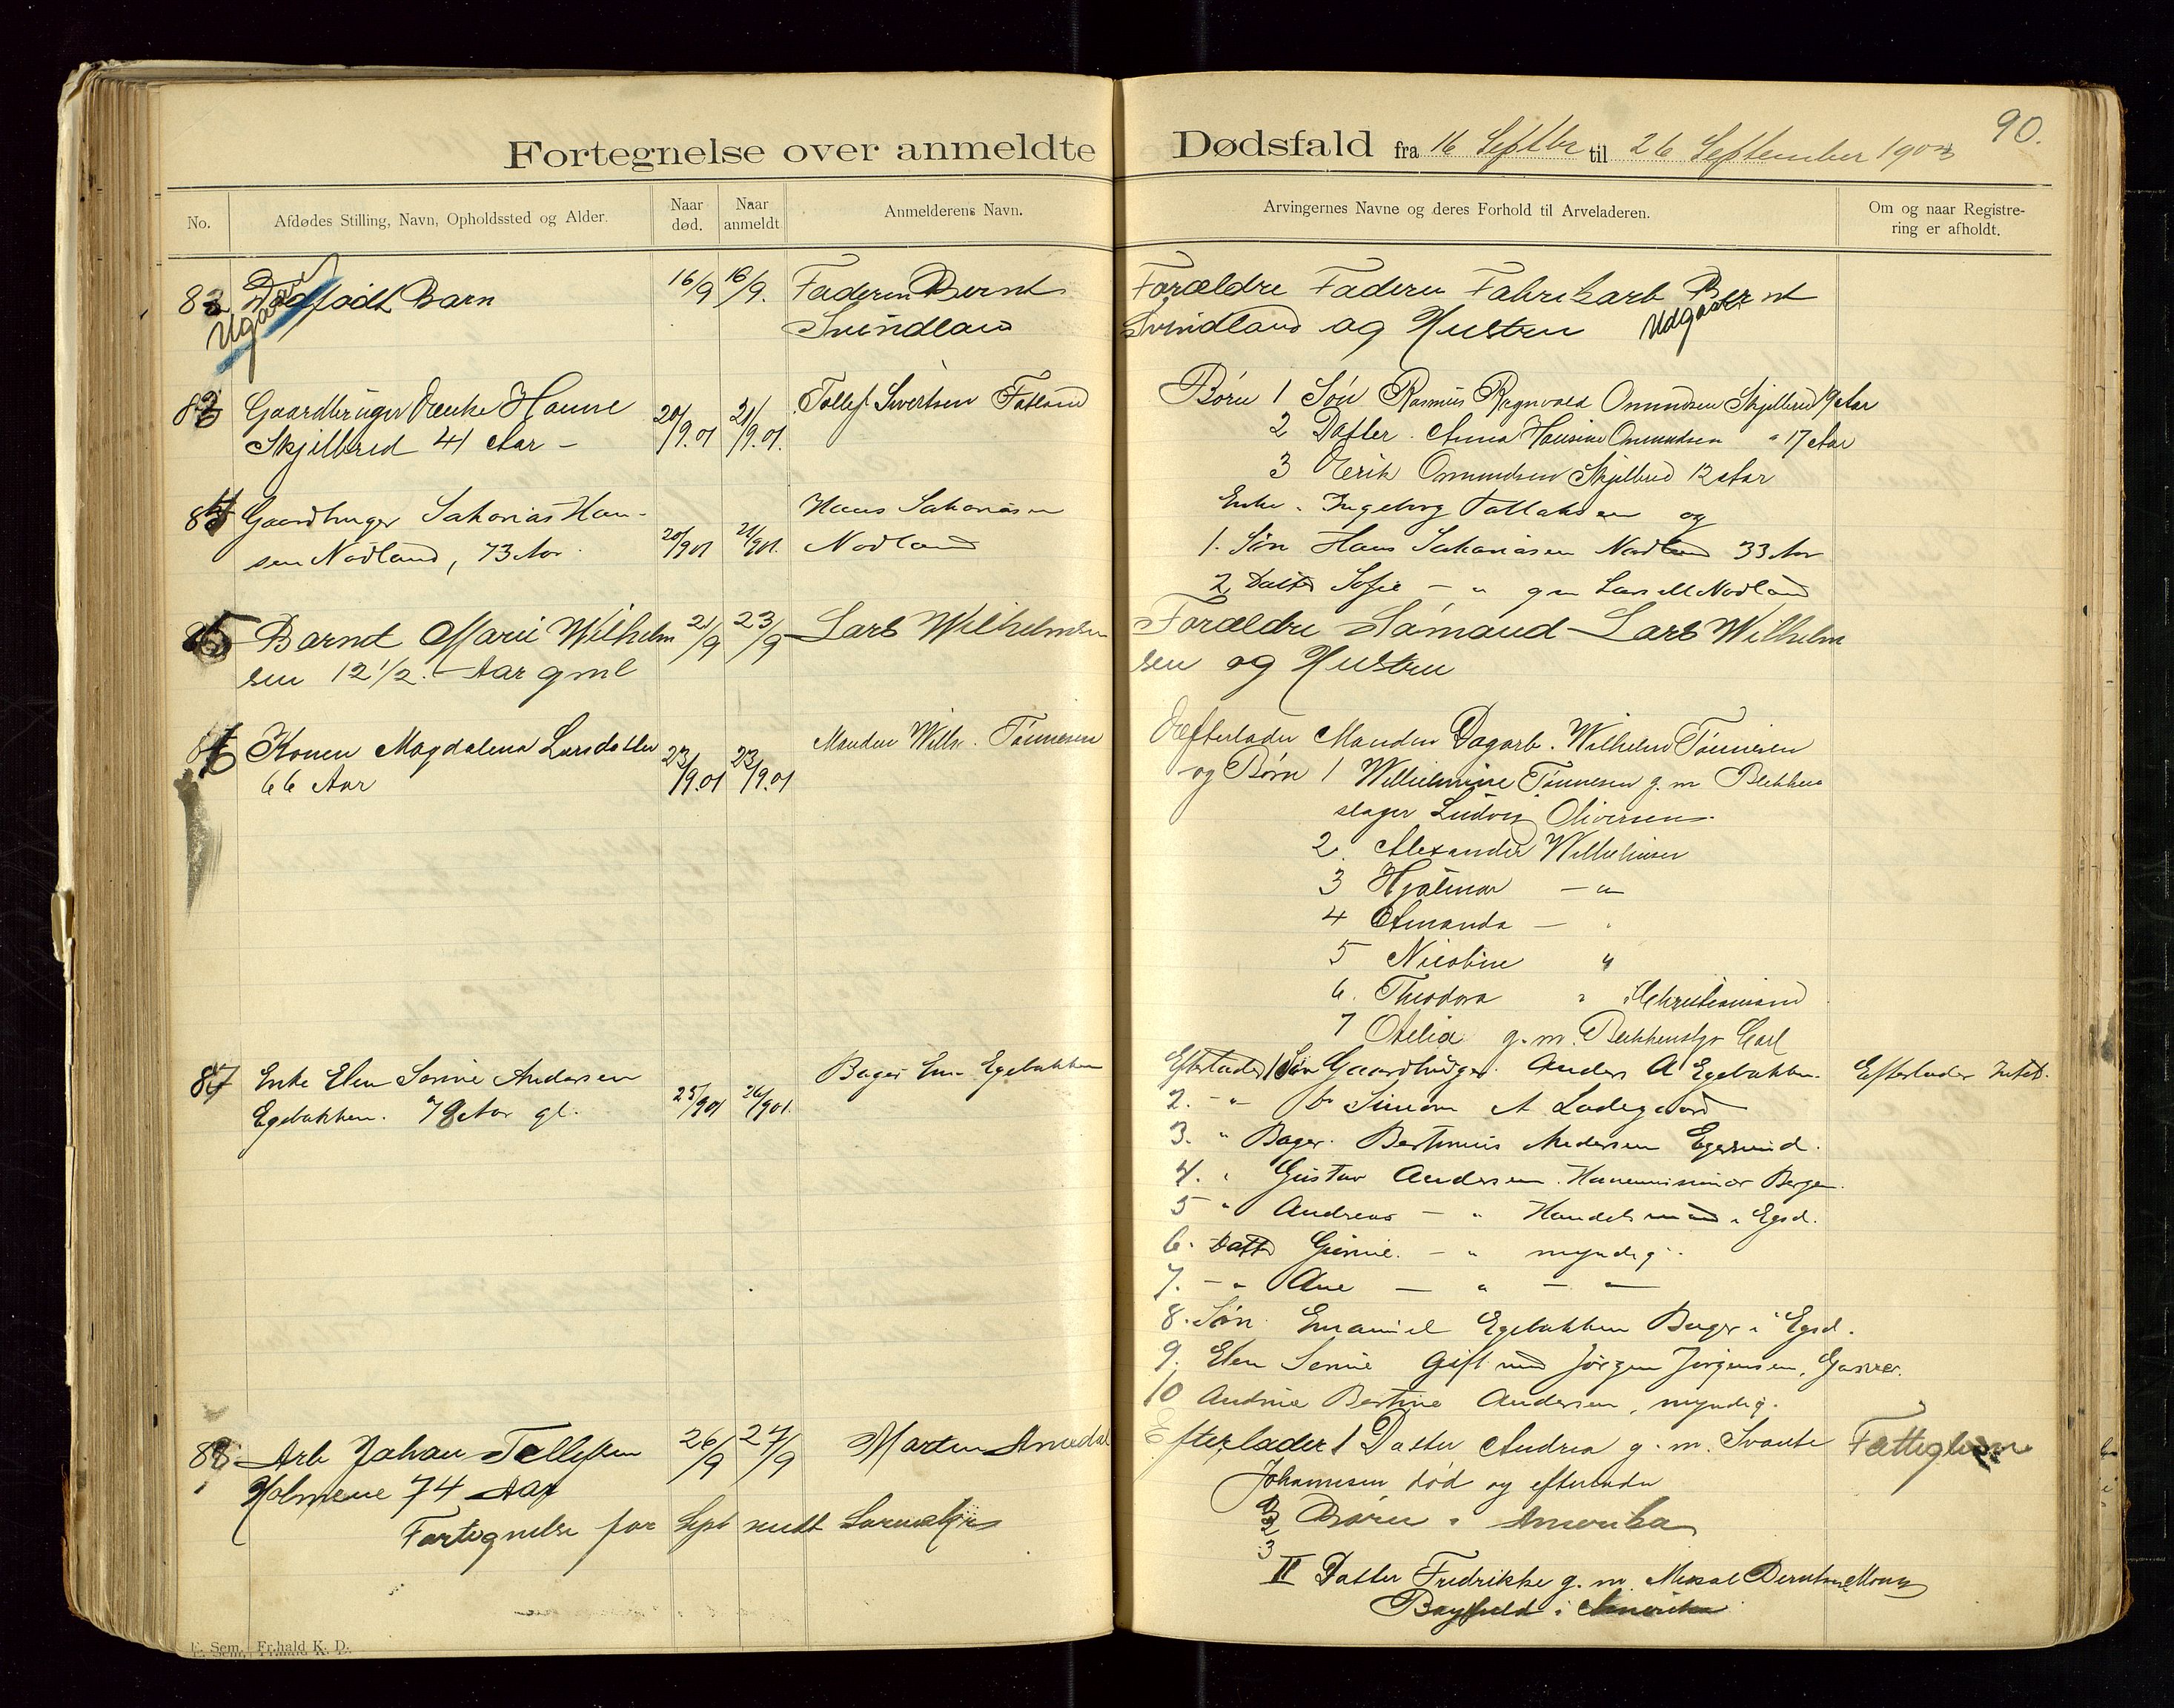 90.
Fortegnelse over anmeldte Dødsfald fra 16 Septbr til 26 September 190
No.
Afdødes Stilling, Navn, Opholdssted og Alder.
Naar død.
Naar anmeldt
Anmelderens Navn.
Arvingernes Navne og deres Forhold til Arveladeren.
Om og naar Registrering er afholdt.
Dødfødt Barn
Ugaar
16/9
16/9.
Faderen Bernt
Svindland
Forældre Faderen Fabrikarb Bernt
Svindland og Hustru Udgaar
83 Gaardbruger Enke Hanne
Skjelbred 41 Aar –
20/9.01
21/9.01.
Tollef Sivertsen Fotland
Børn 1 Søn Rasmus Regnvald Omundsen Skjelbred 19 Aar
2 Datter. Anna Hansine Omundsen " 17 Aar
3 Erik Omundsen Skjelbred 12 Aar
84 Gaardbruger Sakarias Han-
sen Nodland, 73 Aar.
20/901
21/901.
Hans Sakariasen
Nodland
Enke. Ingeborg og
1. Søn Hans Sakariasen Nodland 33 Aar
2 Datter Sofie – " g m Lars M Nodland
85 Barnet Marie Wilhelm
sen 12 1/2. Aar gml
21/9
23/9
Lars Wilhelmsen
Forældre Sømand Lars Wilhelm
sen og Hustru
86 Konen Magdalena Larsdatter
66 Aar
23/9.01
23/9.01
Manden Wilh. Tønnesen
Efterlader Manden Dagarb. Wilhelm Tønnesen
og Børn 1 Wilhelmine Tønnesen g. m Blikken
slager Ludvig Oliversen.
2. Alexander Wilhelmsen
3 Hjalmar – "
4 Amanda –
5 Nicoline "
6. Theodora " i Christiansand
7 Otelia g. m. Blikkenslgr Carl
87 Enke Elen Serine Andersen
Egebakken. 78 Aar gl.
25/901
26/901.
Bager Em. Egebakken
Efterlader 1 Søn Gaardbruger. Anders A Egebakken.
Efterlader Intet.
2. – " Simeon A Ladegaard
3. " Bager. Bertinius Andersen Egersund.
4. " Gustav Andersen. Bergen.
5 " Andreas – " Handelsmand i Egsd.
6. Datter – " myndig.
7. – " Ane – " – "
8. Søn. Emanuel Egebakken Bager i Egsd.
9. Elen Serine gift med Jørgen Jørgensen,
10 Andrea Bertine Andersen, myndig.
88 Arb Johan Tollefsen
Holmene 74 Aar
26/9
27/9
Morten Aarsdal
Efterlader 1 Datter Andrea g. m. Svante
Johannesen død og efterlader
3 Børn i Amerika
2
3
II Datter Fredrikke g. m.
Bayfield i Amerika
Fattiglem
Fortegnelse for Sept sendt Sorenskr
E. Sem, Fr.hald K. D.